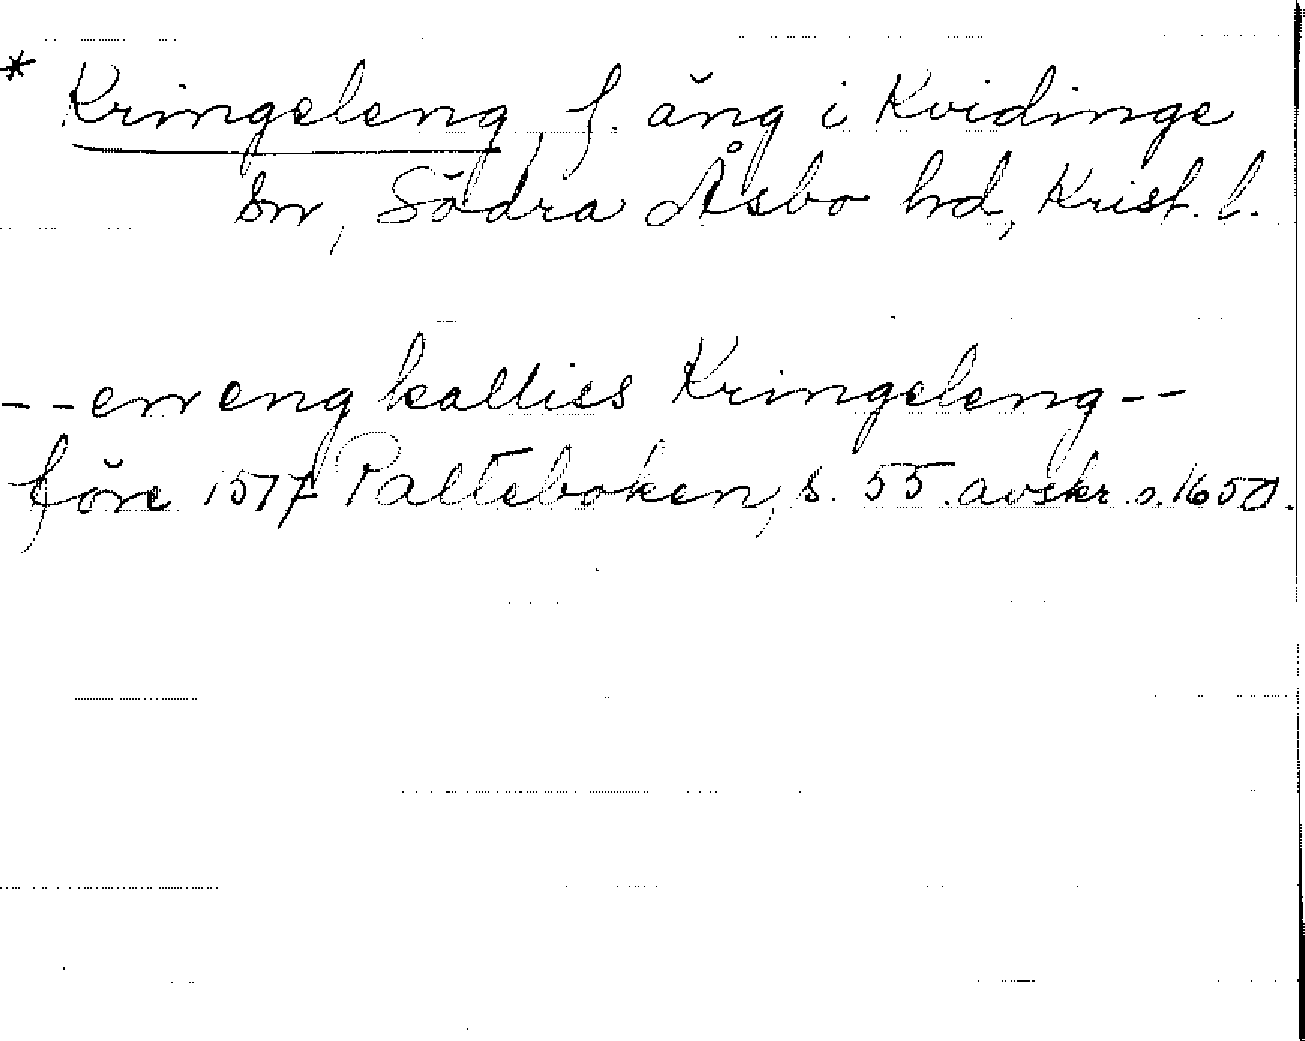 * Kringeleng, f. äng i Kvidinge
sn, Södra Åsbo hd, Krist. l.
-- en eng kalliss Kringeleng --
före 1577 Palteboken, s. 55. avskr. o. 1650.